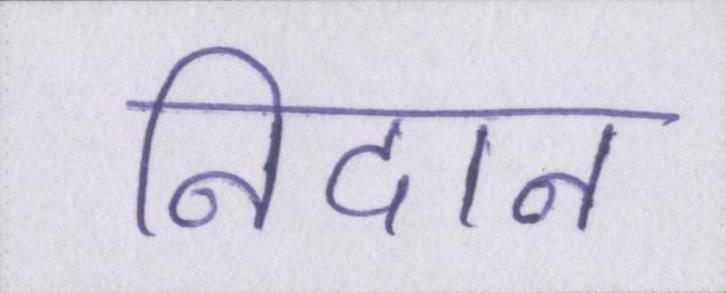 निदान